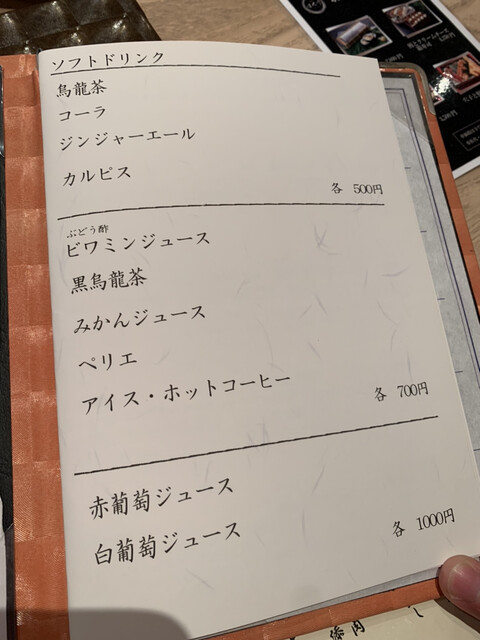 ソフトドリンク
烏龍茶
コーラ
ジンジャーエール
カルピス
各 500円
ぶどう酢
ビワミンジュース
黒烏龍茶
みかんジュース
ペリエ
アイス・ホットコーヒー
各 700円
赤葡萄ジュース
白葡萄ジュース
各 1000円